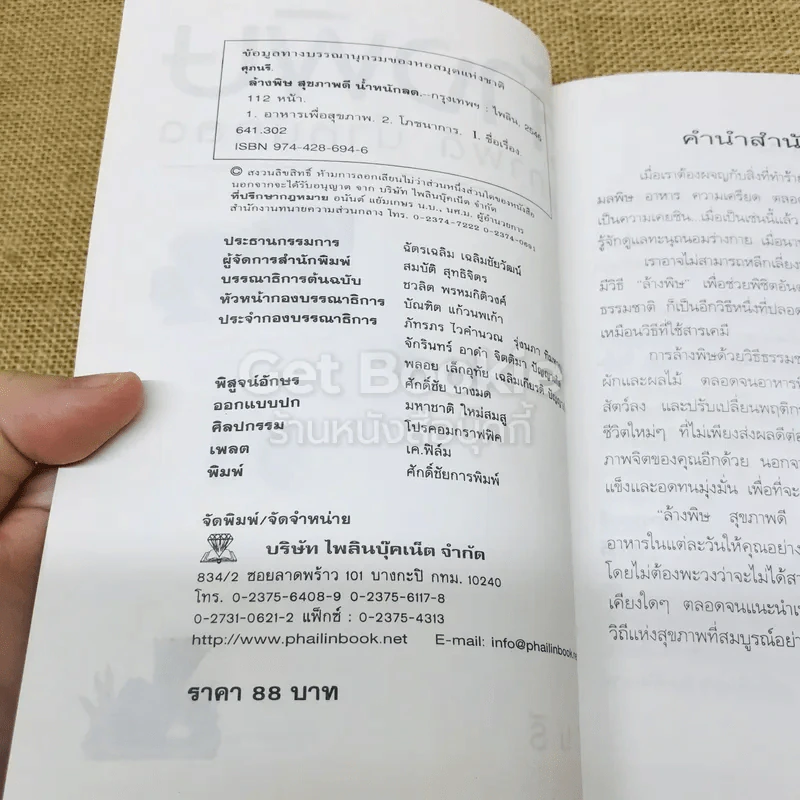 ข้อมูลทางบรรณานุกรมของหอสมุดแห่งชาติ
ศุภนรี.
ล้างพิษ สุขภาพดี น้ำหนักลด.--กรุงเทพฯ : ไพลิน, 2546
112 หน้า.
1. อาหารเพื่อสุขภาพ. 2. โภชนาการ. I. ชื่อเรื่อง.
641.302
ISBN 974-428-694-6
© สงวนลิขสิทธิ์ ห้ามการลอกเลียนไม่ว่าส่วนหนึ่งส่วนใดของหนังสือ
นอกจากจะได้รับอนุญาต จาก บริษัท ไพลินบุ๊คเน็ต จำกัด
ที่ปรึกษากฎหมาย อนันต์ แย้มเกษร น.บ., นศ.ม. ผู้อำนวยการ
สำนักงานทนายความส่วนกลาง โทร. 0-2374-7222 0-2374-0691
ประธานกรรมการ ฉัตรเฉลิม เฉลิมชัยวัฒน์
ผู้จัดการสำนักพิมพ์ สมบัติ สุทธิจิตร
บรรณาธิการต้นฉบับ ชวลิต พรหมกิติวงศ์
หัวหน้ากองบรรณาธิการ บัณฑิต แก้วนพเก้า
ประจำกองบรรณาธิการ ภัทรภร ไวคำนวณ รุ่งนภา
จักรินทร์ อาดำ จิตติมา
พลอย เล็กอุทัย เฉลิมเกียรติ
พิสูจน์อักษร ศักดิ์ชัย บางมด
ออกแบบปก มหาชาติ ใหม่สมสู
ศิลปกรรม โปรคอมกราฟฟิค
เพลต เค.ฟิล์ม
พิมพ์ ศักดิ์ชัยการพิมพ์
Get Booki
ร้านหนังสือบุ๊กกี้
จัดพิมพ์/จัดจำหน่าย
บริษัท ไพลินบุ๊คเน็ต จำกัด
834/2 ซอยลาดพร้าว 101 บางกะปิ กทม. 10240
โทร. 0-2375-6408-9 0-2375-6117-8
0-2731-0621-2 แฟ็กซ์ : 0-2375-4313
http://www.phailinbook.net E-mail: info@phailinbook.ne
ราคา 88 บาท
คำนำสำนั
เมื่อเราต้องผจญกับสิ่งที่ทำร้าย
มลพิษ อาหาร ความเครียด ตลอด
เป็นความเคยชิน. เมื่อเป็นเช่นนี้แล้ว
รู้จักดูแลทะนุถนอมร่างกาย เมื่อนาน
เราอาจไม่สามารถหลีกเลี่ยง
มีวิธี "ล้างพิษ" เพื่อช่วยพิชิตอันต
ธรรมชาติ ก็เป็นอีกวิธีหนึ่งที่ปลอด
เหมือนวิธีที่ใช้สารเคมี
การล้างพิษด้วยวิธีธรรมช
ผักและผลไม้ ตลอดจนอาหารห
สัตว์ลง และปรับเปลี่ยนพฤติกร
ชีวิตใหม่ๆ ที่ไม่เพียงส่งผลดีต่อ
ภาพจิตของคุณอีกด้วย นอกจา
แข็งและอดทนมุ่งมั่น เพื่อที่จะ
"ล้างพิษ สุขภาพดี
อาหารในแต่ละวันให้คุณอย่าง
โดยไม่ต้องพะวงว่าจะไม่ได้สา
เคียงใดๆ ตลอดจนแนะนำเ
วิถีแห่งสุขภาพที่สมบูรณ์อย่า